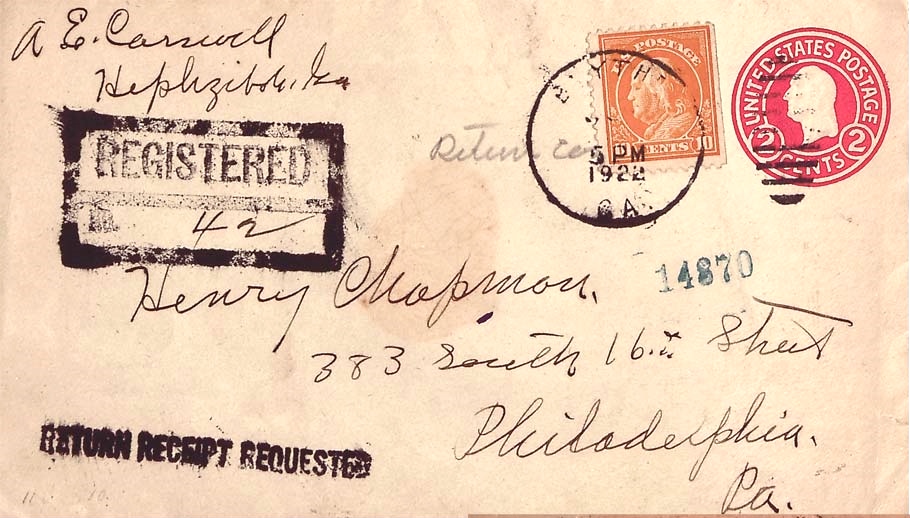 A E. Carswell
Hephzibah, Ga
REGISTERED
42
Return
U.S. POSTAGE
CENTS 10
BLYTHE
5 PM
1922
GA.
UNITED STATES POSTAGE
2 CENTS 2
14870
Henry Chapman.
383 South 16th Street
Philadelphia.
Pa.
RETURN RECEIPT REQUESTED